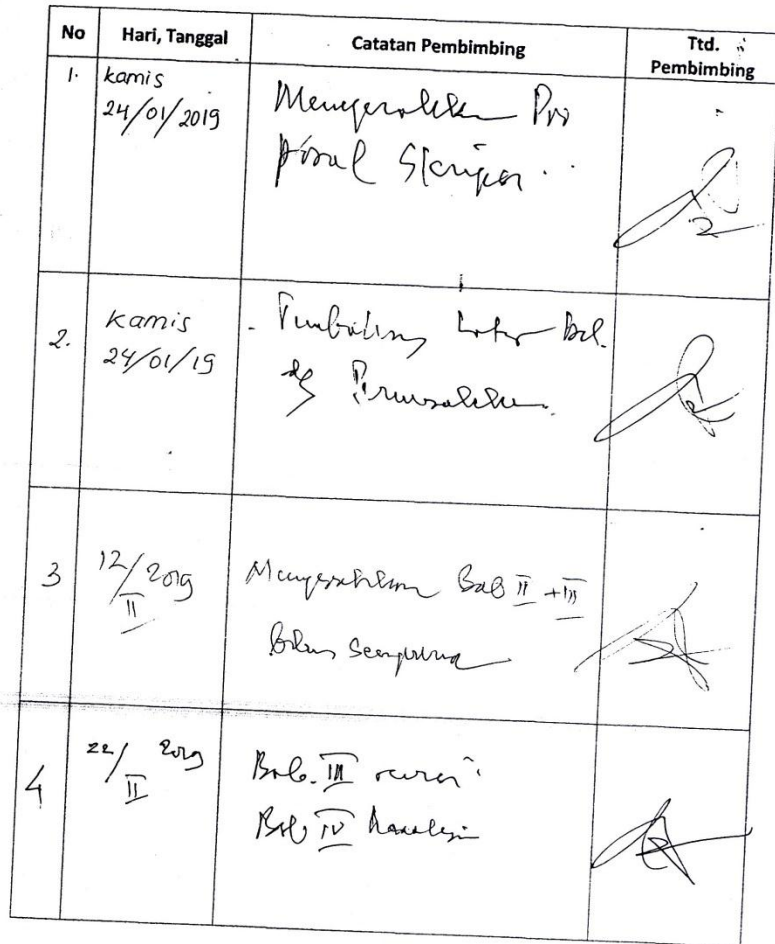 No Hari, Tanggal Catatan Pembimbing Ttd. Pembimbing
1. kamis
24/01/2019
Menyerahkan Pro
posal Skripsi
2. Kamis
24/01/19
Latar Bel.
dg
3 12/II 2019
Menyerahkan Bab II + III
Belum Sempurna
4 22/II 2019
Bab. III revisi
Bab IV